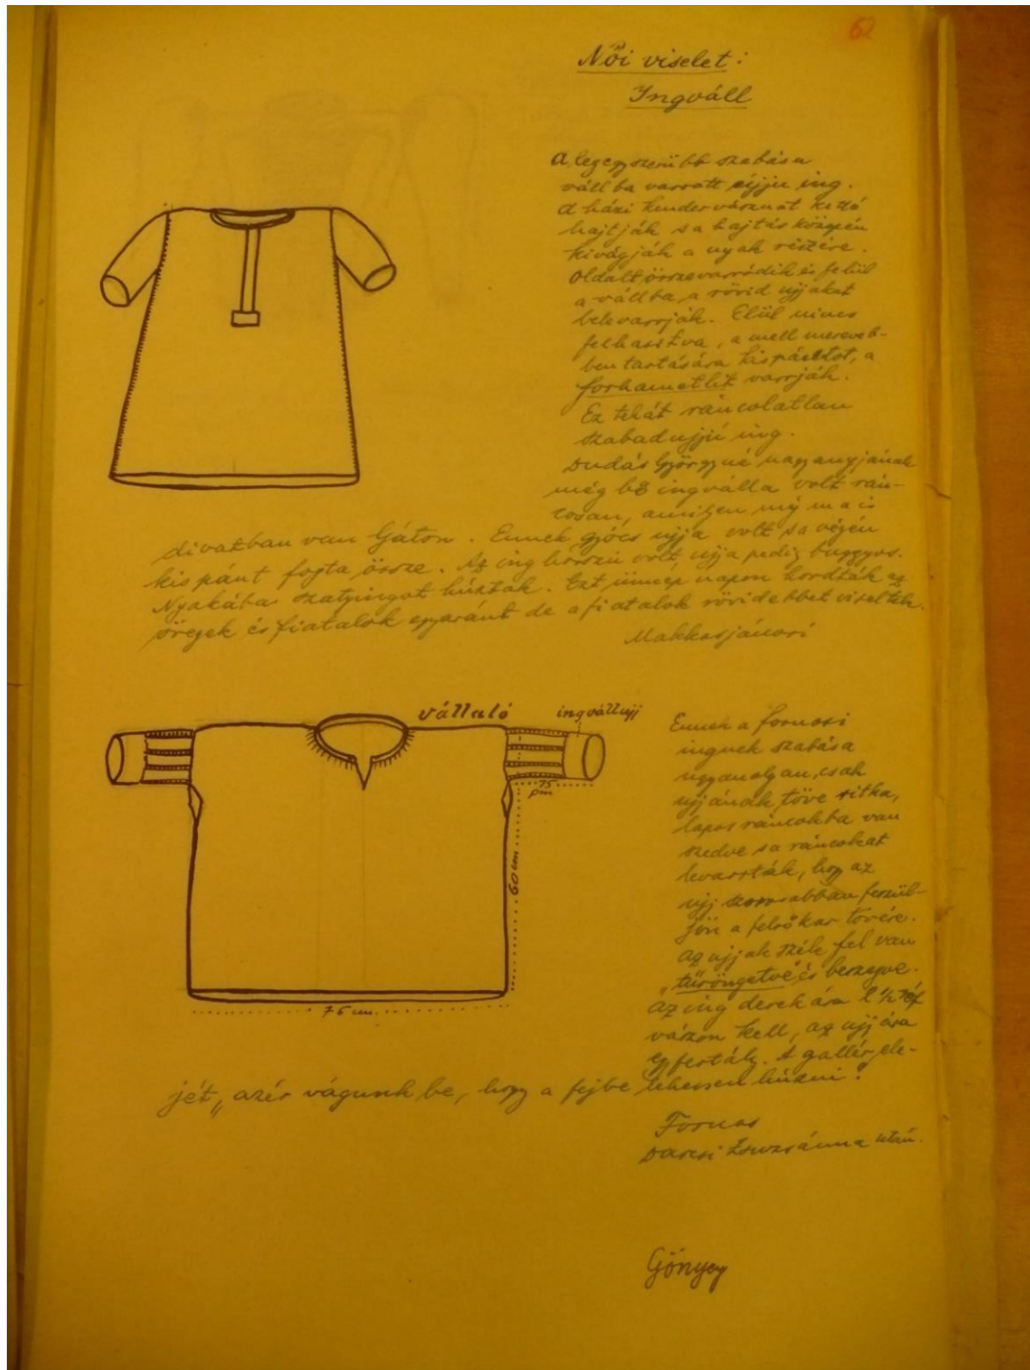 62
Női viselet:
Ingváll
A legegyszerübb szabásu
vállba varrott ujju ing.
A házi kendervásznat ketté
hajtják s a hajtás közepén
kivágják a nyak részére.
Oldalt összevarródik és felül
a vállba a rövid ujjakat
belevarrják. Elül nincs
felhasítva, a mell mereveb-
ben tartására kis pántot, a
forhametlit varrják.
Ez tehát ráncolatlan
szabadujjú ing.
Dudás Györgyné nagyanyjának
még bő ingválla volt rán-
cosan, amilyen még ma is
divatban van Gáton. Ennek gyócs ujja volt s a végén
kis pánt fogta össze. Az ing hosszú volt ujja pedig buggyos.
Nyakába szatyingot húztak. Ezt ünnep napon hordták az
öregek és fiatalok egyaránt de a fiatalok rövidebbet viseltek.
Makkosjánosi
vállaló
ingvállujj
15
60 cm
75 cm.
Ennek a fornosi
ingnek szabása
ugyanolyan, csak
ujjának töve ritka,
lapos ráncokba van
szedve s a ráncokat
levarrták, hogy az
ujj szorosabban feszül-
jön a felső kar tövére.
Az ujjak széle fel van
"türöngetve" és beszegve.
Az ing derekára 1 1/2 réf
vászon kell, az ujjára
egy fertály. A gallér ele-
jét "azér vágunk be, hogy a fejbe lehessen húzni".
Fornos
Darcsi Zsuzsánna után.
Gönyey